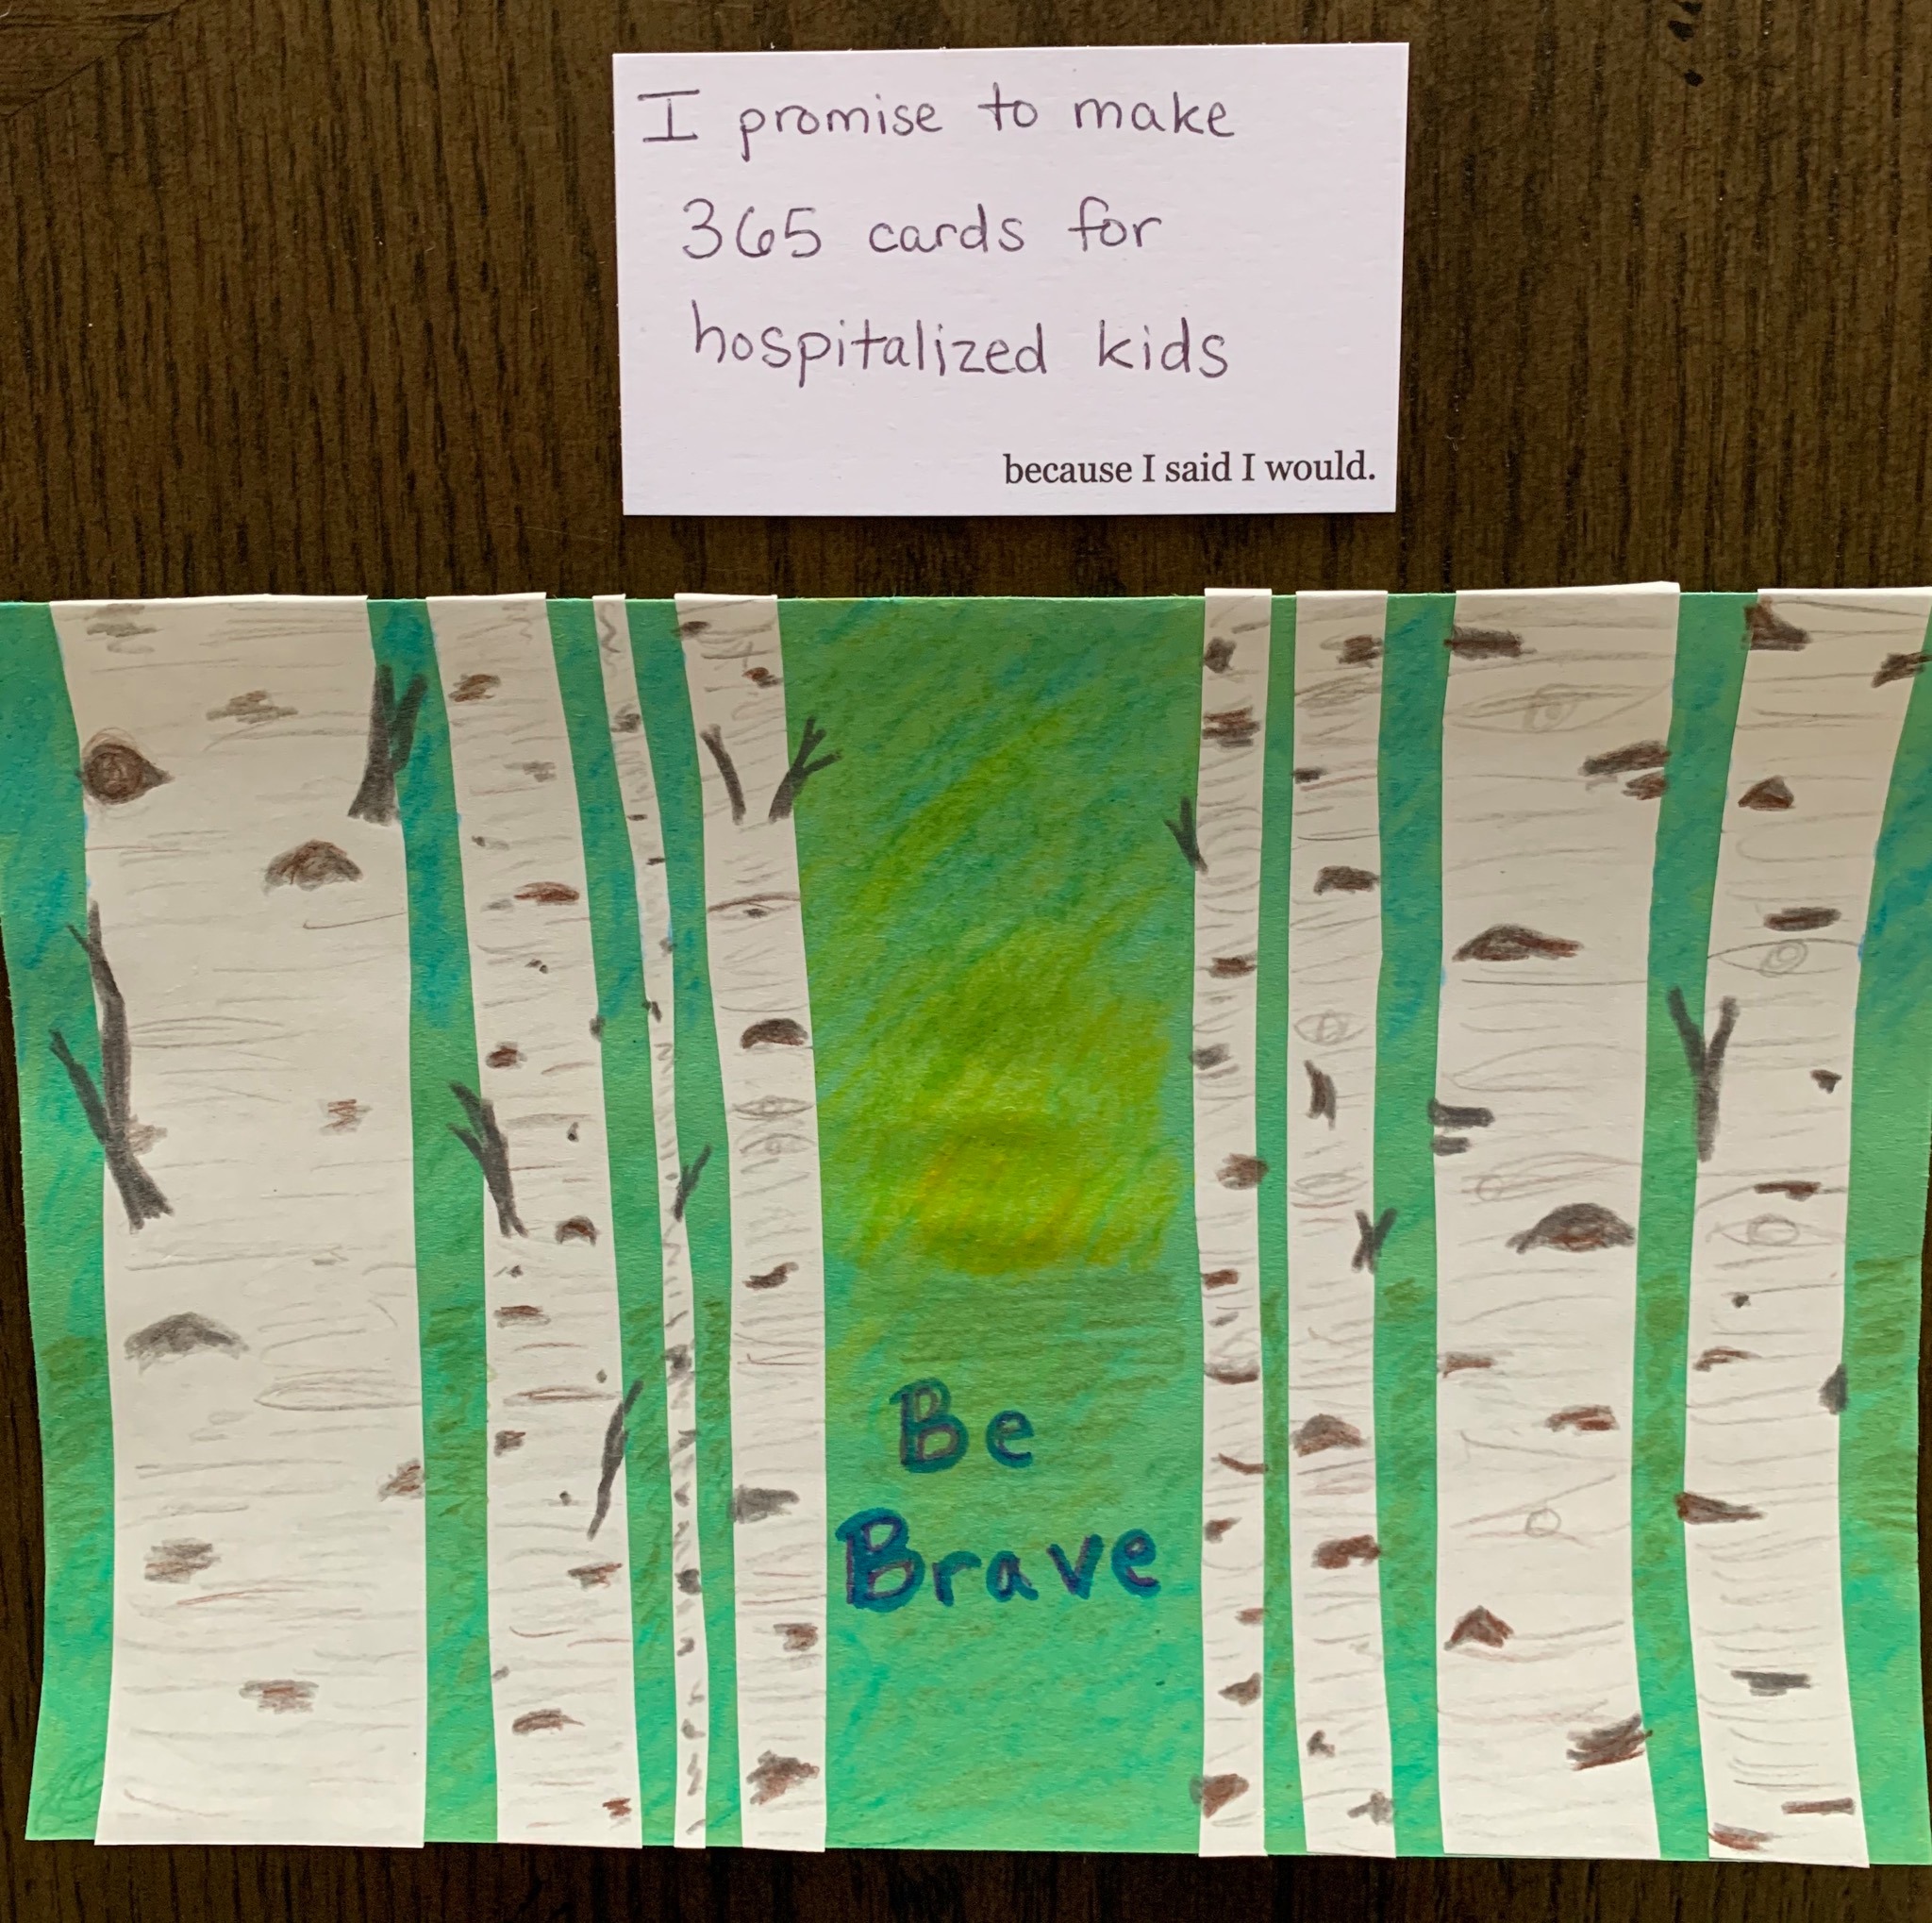 I promise to make
365 cards for
hospitalized kids
because I said I would.
Be
Brave